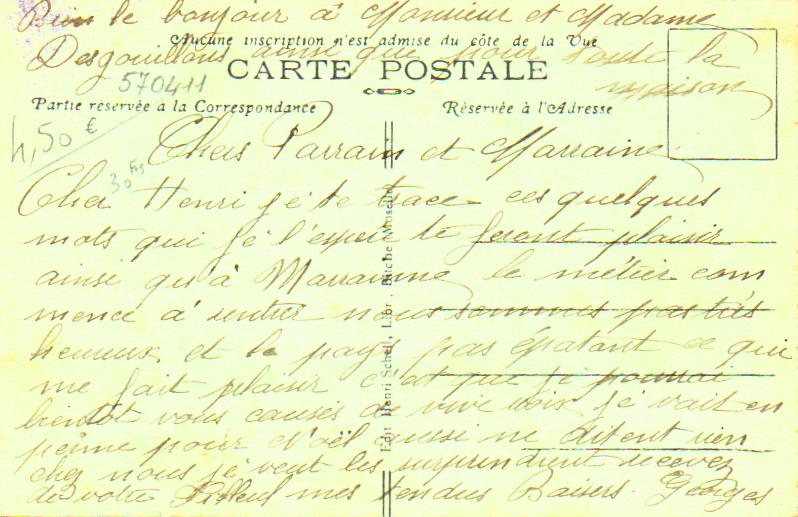 Bien le bonjour à Monsieur et Madame
Desgouillons ainse que pour toute la
maison
Aucune inscription n'est admise du côte de la Vue
CARTE POSTALE
570411
Partie réservée à la Correspondance
Réservée à l'Adresse
4,50 €
Chers Parrain et Marraine
Cher Henri je te trace ces quelques
mots qui je l'esper te feront plaisir
ainse qu'à Marrainne le métier com
mence à rentrer nous sommes pas très
heureux et le pays pas épatant ce qui
me fait plaisir c'est que je pourrai
bientot vous causés de vive voix je vait en
perme pour Noël aussi ne ditent rien
chez nous je veut les surprendrent recevez
de votre Filleul mes tendres Baisers. Georges
Edit Henri Schell, Libr. Bitche (Moselle)